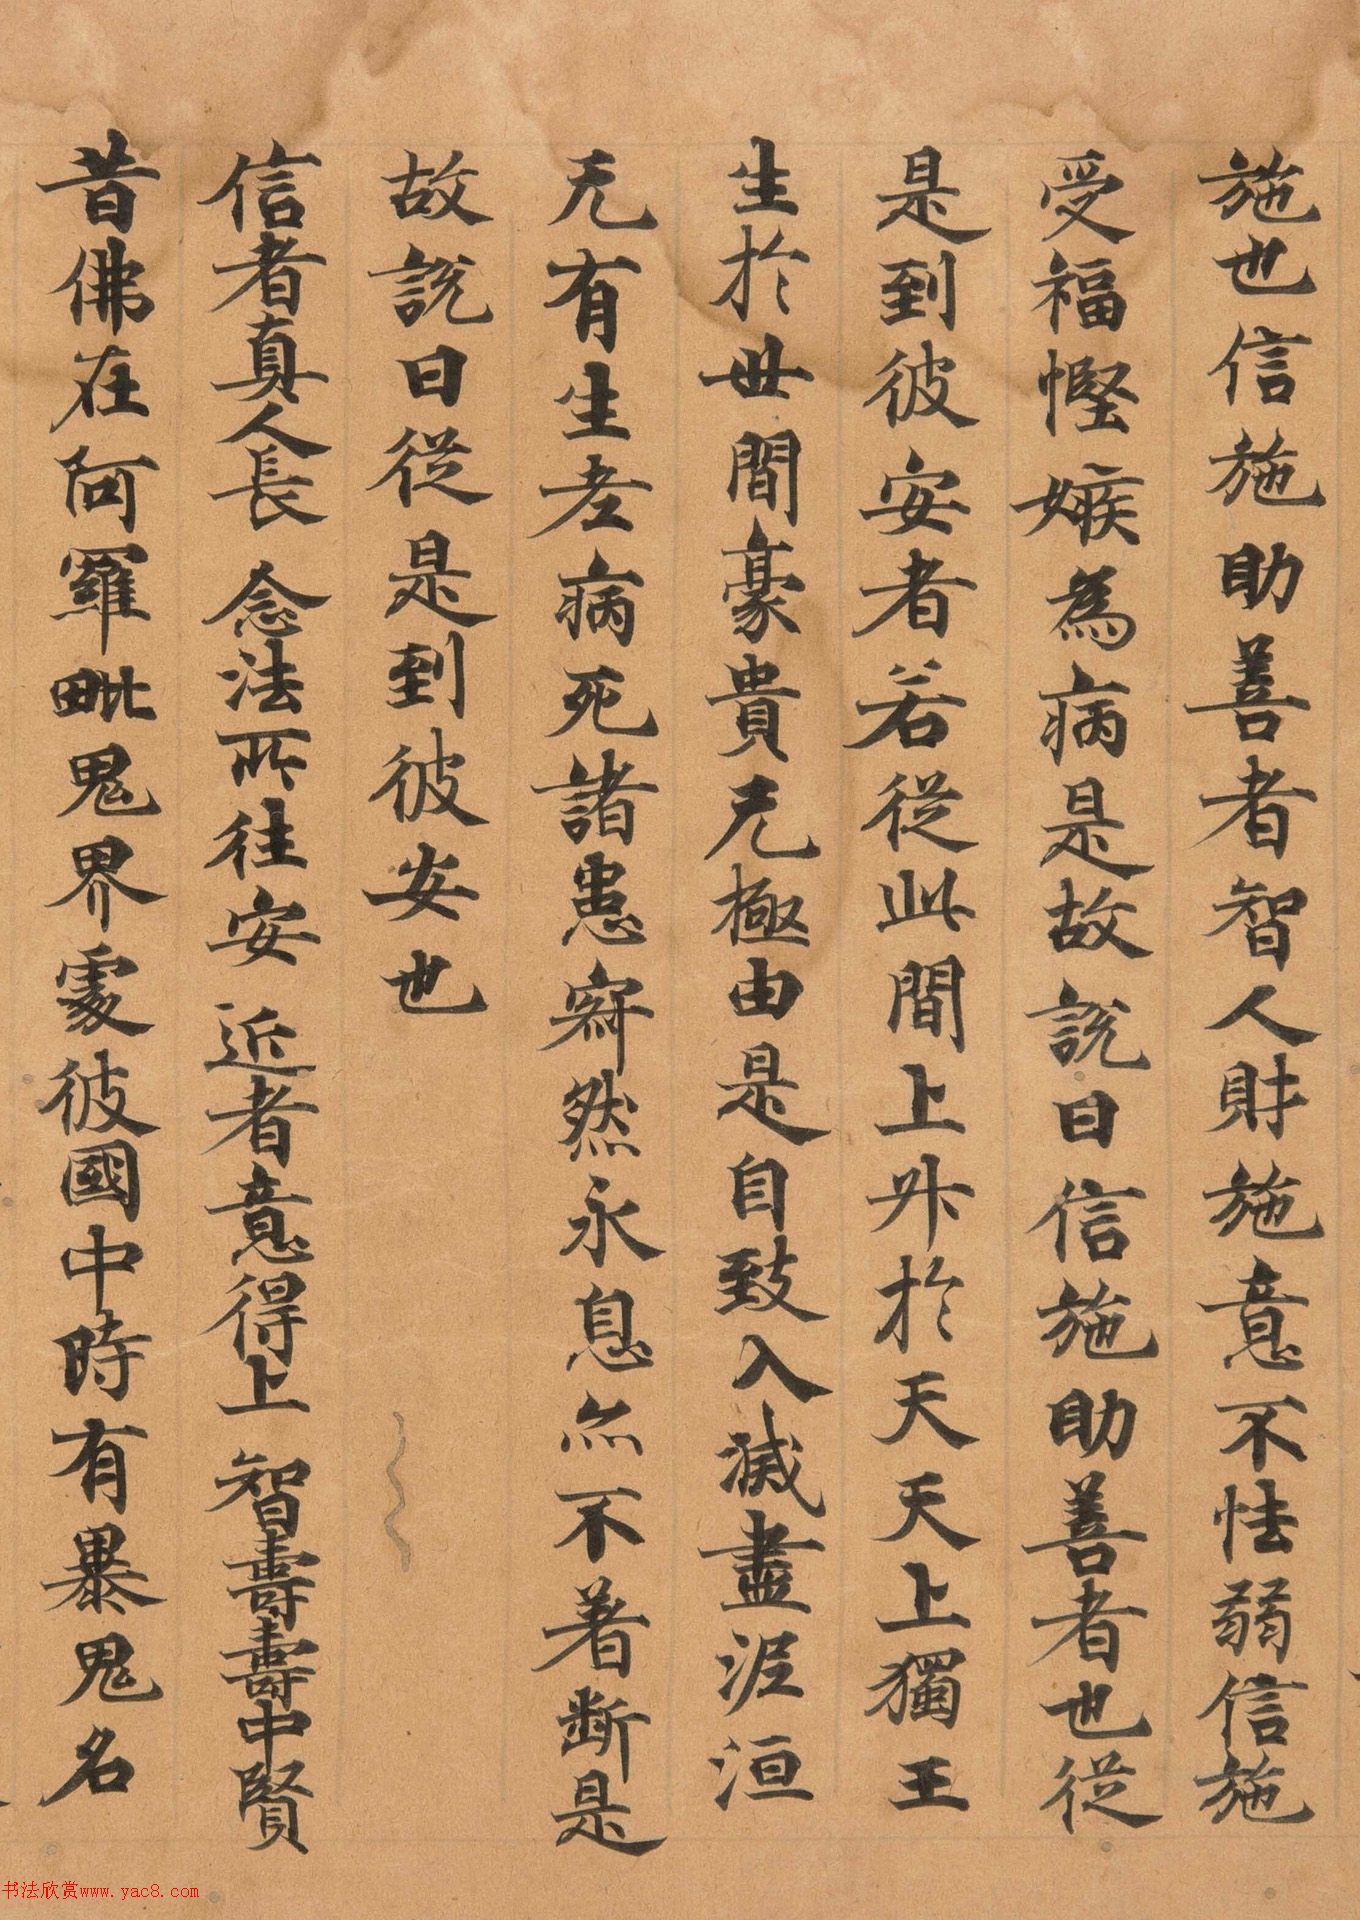 施也信施助善者智人財施意不怯弱信施
受福慳嫉為病是故說曰信施助善者也從
是到彼安者若從此間上升於天天上獨王
生於世間豪貴无極由是自致入滅盡泥洹
无有生老病死諸患寂然永息亦不著斷是
故說曰從是到彼安也
信者真人長 念法所往安 近者意得上 智壽壽中賢
昔佛在阿羅毗鬼界處彼國中時有暴鬼名
书法欣赏www.yac8.com